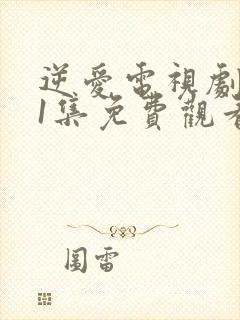 逆愛電視劇
1集免費觀看
圖雷